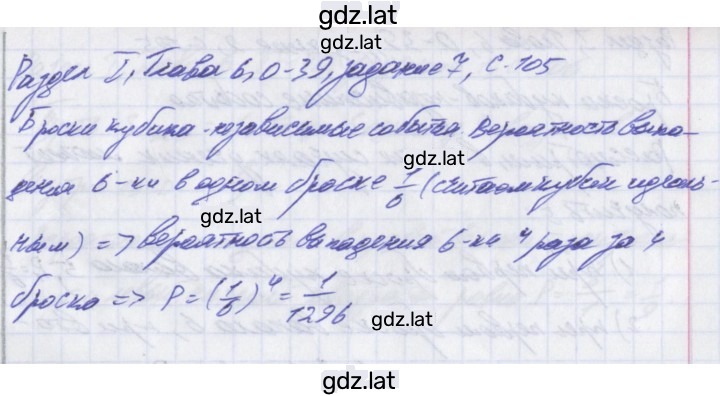 gdz.lat
Раздел I, Глава 6, О-39, задание 7, с. 105
Броски кубика - независимые события. Вероятность выпа-
gdz.lat
дения 6-ки в одном броске 1/6 (считаем кубик идеаль-
gdz.lat
ным) => вероятность выпадения 6-ки 4 раза за 4
броска => P = (1/6)^4 = 1/1296
gdz.lat
gdz.lat